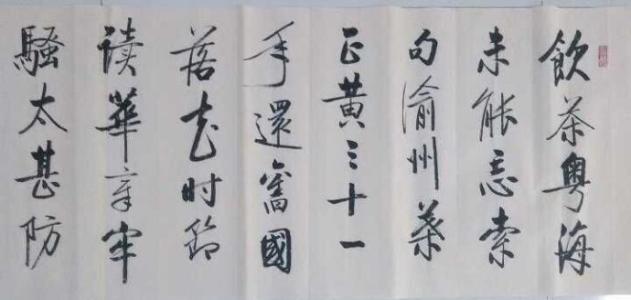 飲茶粤海
未能忘索
句渝州葉
正黄三十一
年還舊國
落花时節
讀華章牢
騷太甚防